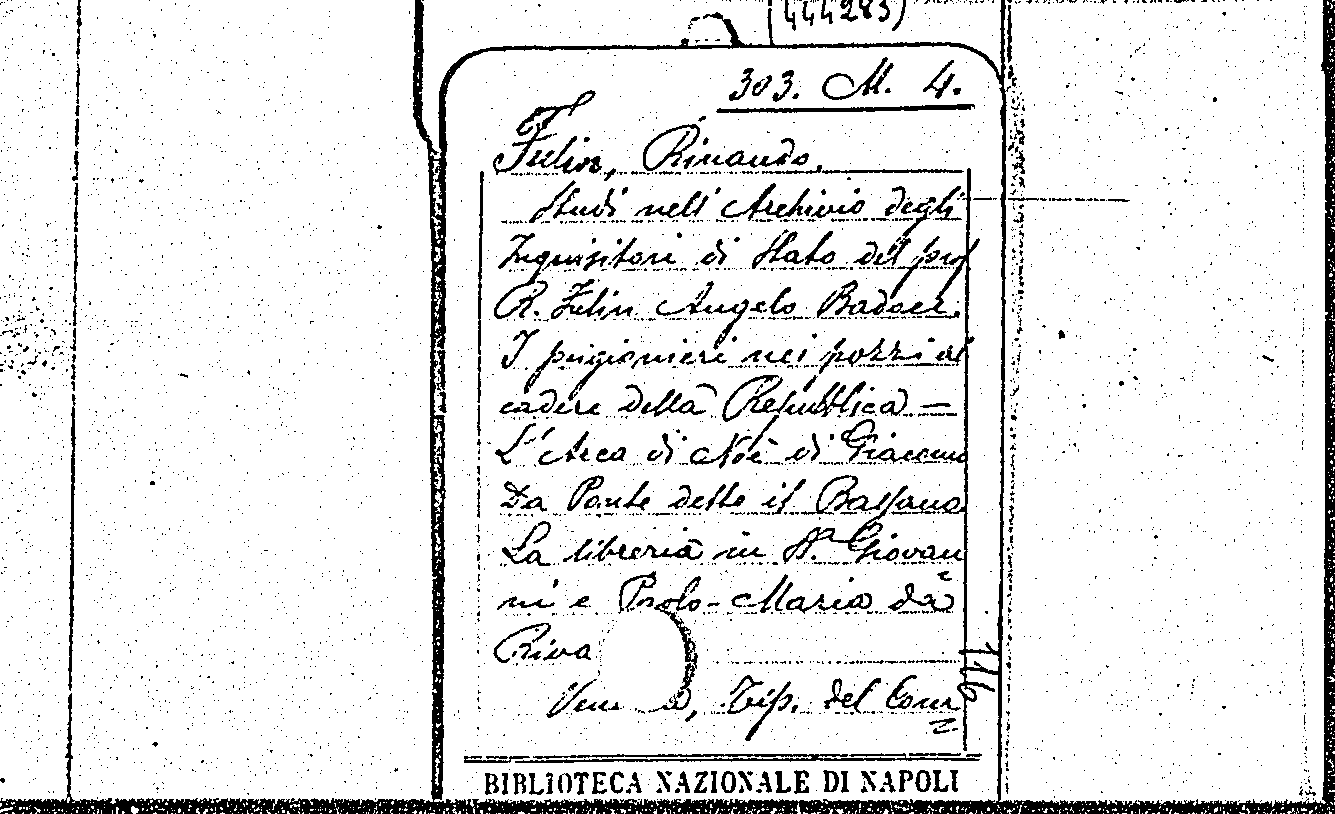 (444283)
303. M. 4.
Fulin, Rinaudo.
Studi nell' Archivio degli
Inquisitori di Stato del prof
R. Fulin Angelo Badoer.
I prigionieri nei pozzi al
cadere della Repubblica —
L'Arca di Noè di Giacomo
Da Ponte detto il Bassano
La libreria in S. Giovan
ni e Paolo - Maria da
Riva
Ven a, Tip. del Com
116
BIBLIOTECA NAZIONALE DI NAPOLI